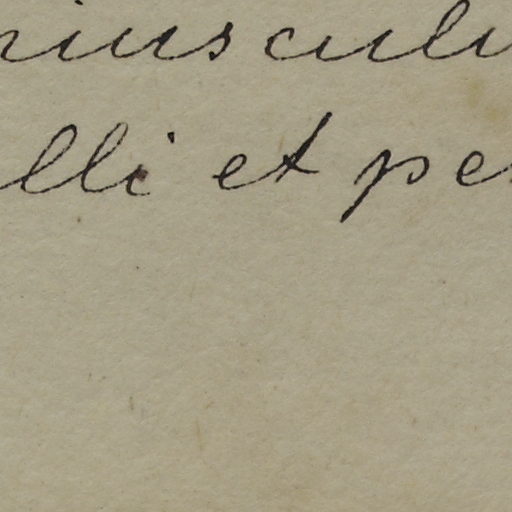 iusculi
lli et pe